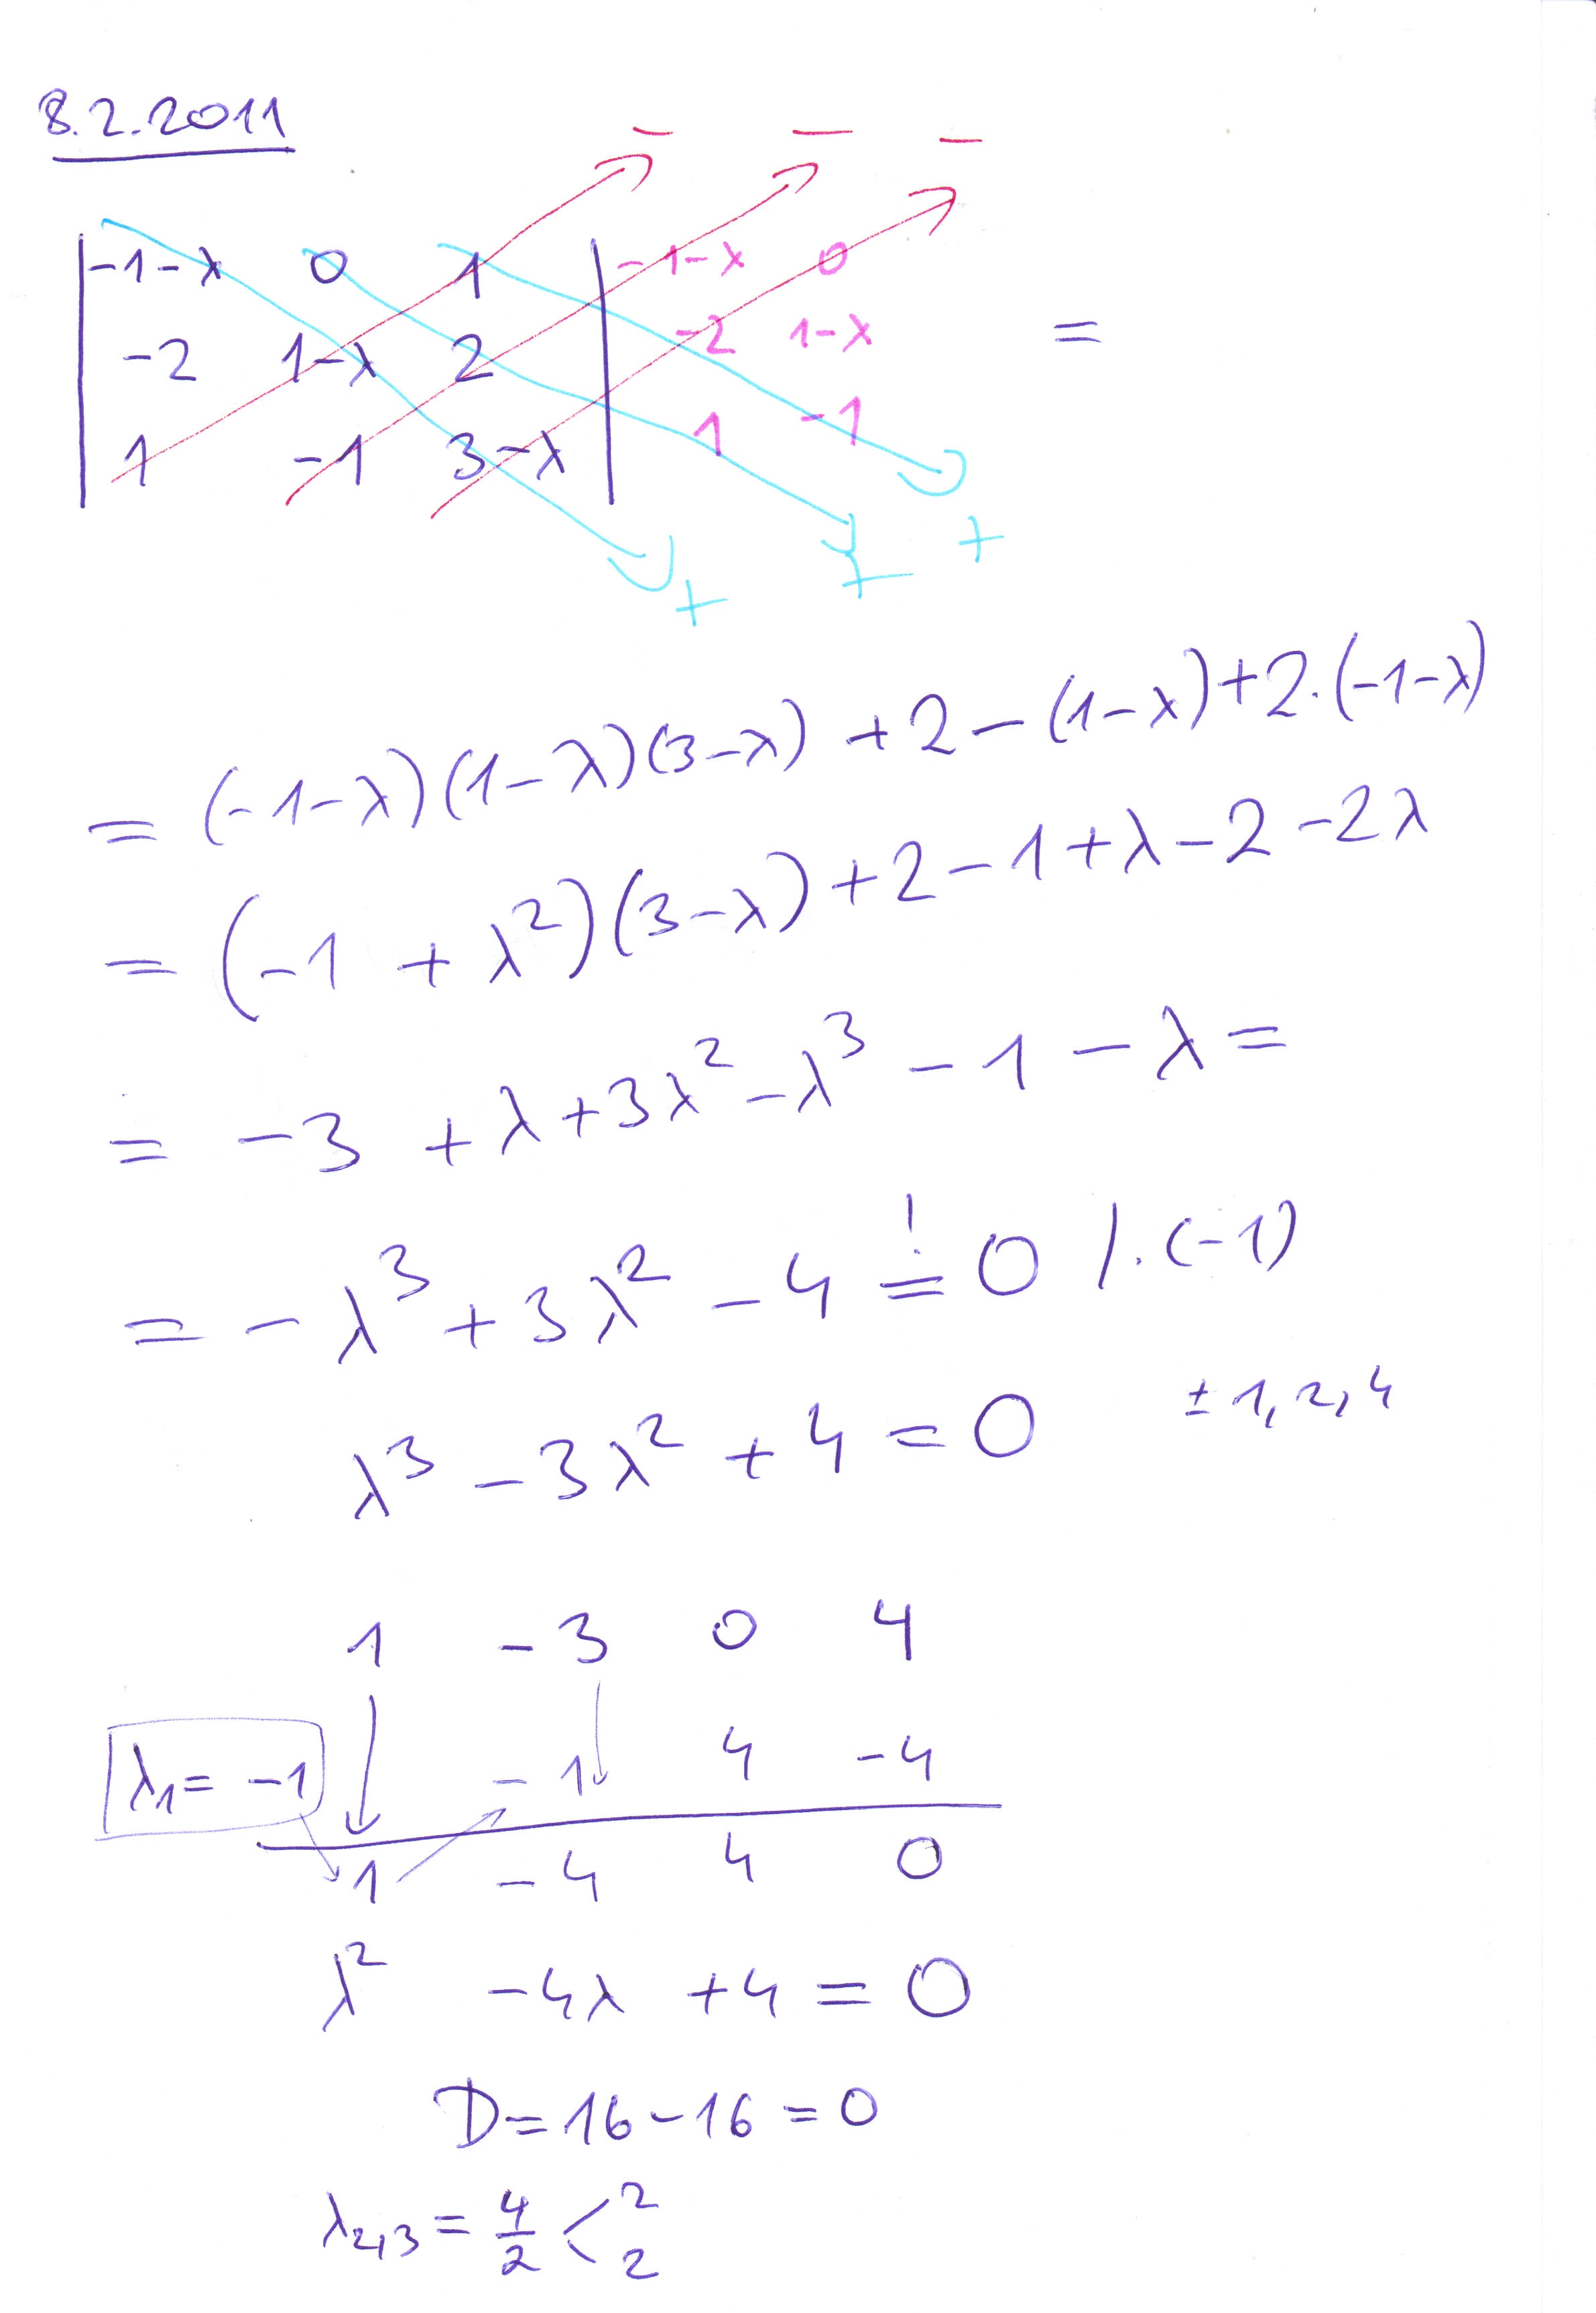 8.2.2011
− − −
| -1-λ 0 1 | -1-λ 0
| -2 1-λ 2 | -2 1-λ =
| 1 -1 3-λ | 1 -1
+ + +
= (-1-λ)(1-λ)(3-λ) + 2 - (1-λ) + 2·(-1-λ)
= (-1 + λ²)(3-λ) + 2 - 1 + λ - 2 - 2λ
= -3 + λ + 3λ² - λ³ - 1 - λ =
= -λ³ + 3λ² - 4 =! 0 /·(-1)
λ³ - 3λ² + 4 = 0 ± 1, 2, 4
1 -3 0 4
λ₁ = -1 -1 4 -4
1 -4 4 0
λ² -4λ +4 = 0
D = 16 - 16 = 0
λ₂,₃ = 4/2 < 2
2